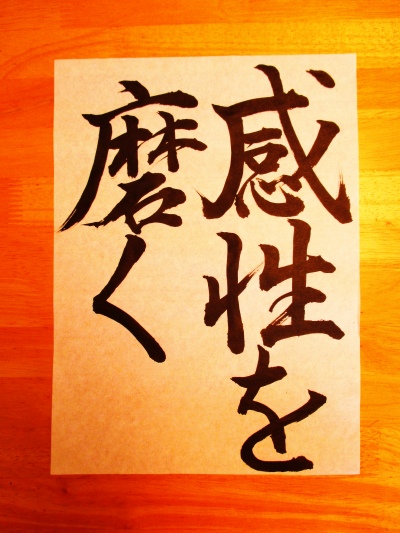 感性を
磨く